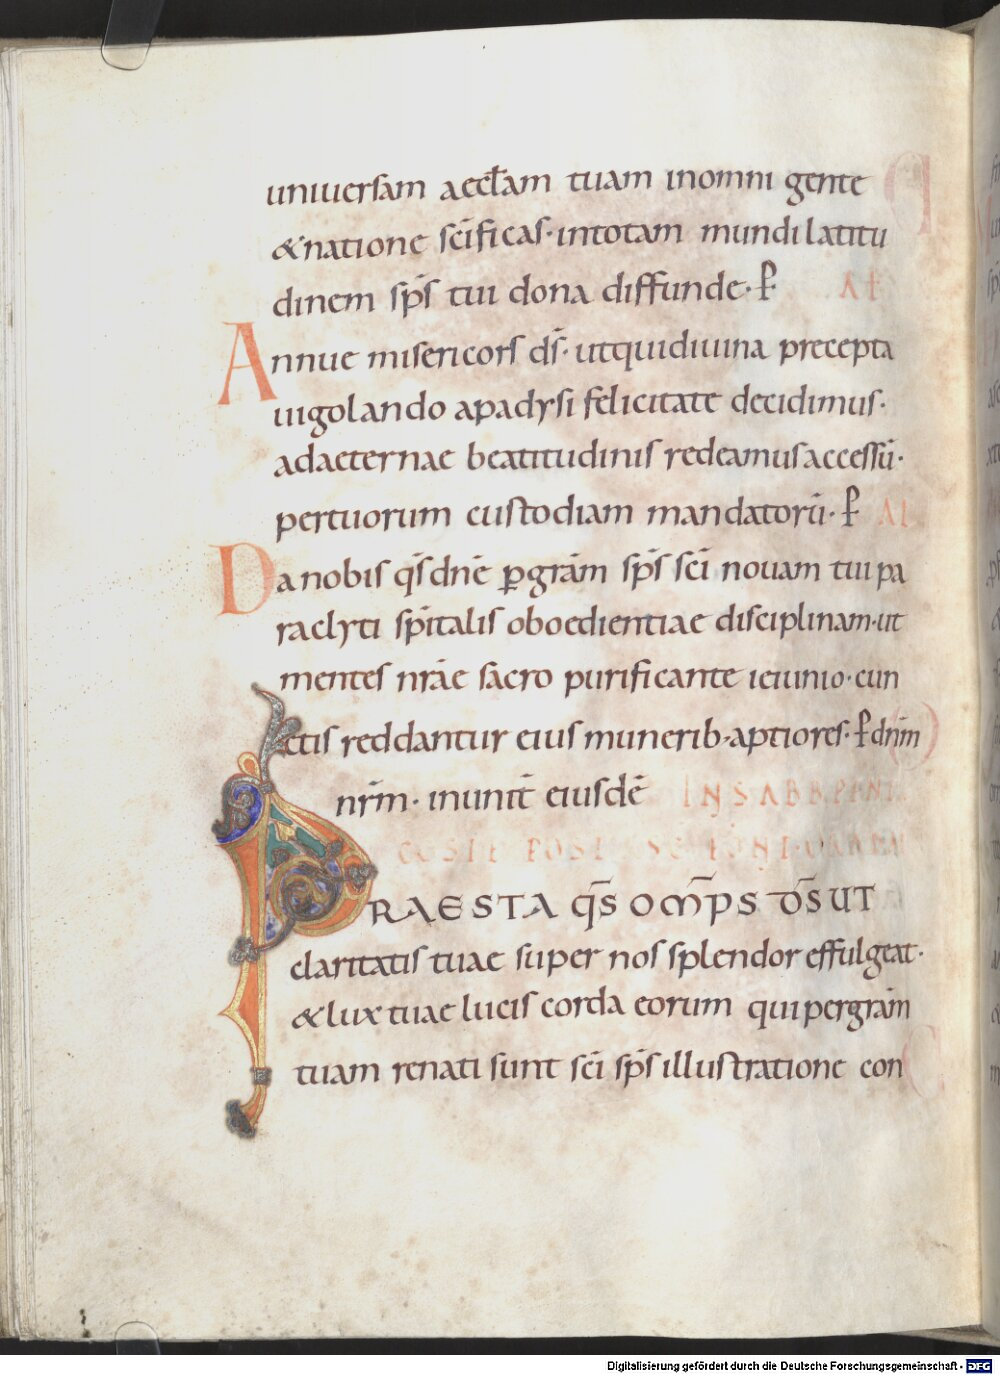 uniuersam aecl̄am tuam inomni gente
&natione sc̄ificas· intotam mundi latitu
dinem sp̄s tui dona diffunde· P̄
AƗ
Annue misericors d̄s· utquidiuina precepta
uigolando apadysi felicitate decidimus·
adaeternae beatitudinis redeamusaccessū·
pertuorum custodiam mandatorū· P̄
Danobis qs̄ dn̄e ꝑgrām sp̄s sc̄i nouam tui pa
raclyti sp̄italis oboedientiae disciplinam·ut
mentes nrāe sacro purificante ieiunio· cun
ctis reddantur eius munerib·aptiores· P̄ dnm̄
nrm̄· inunit̄ eiusdē INSABB PENT
COSTE POST
PRAESTA qs̄ OMP̄S DS̄ UT
claritatis tuae super nos splendor effulgeat·
&lux tuae lucis corda eorum qui pergrām
tuam renati sunt sc̄i sp̄s illustratione con
Digitalisierung gefördert durch die Deutsche Forschungsgemeinschaft - DFG